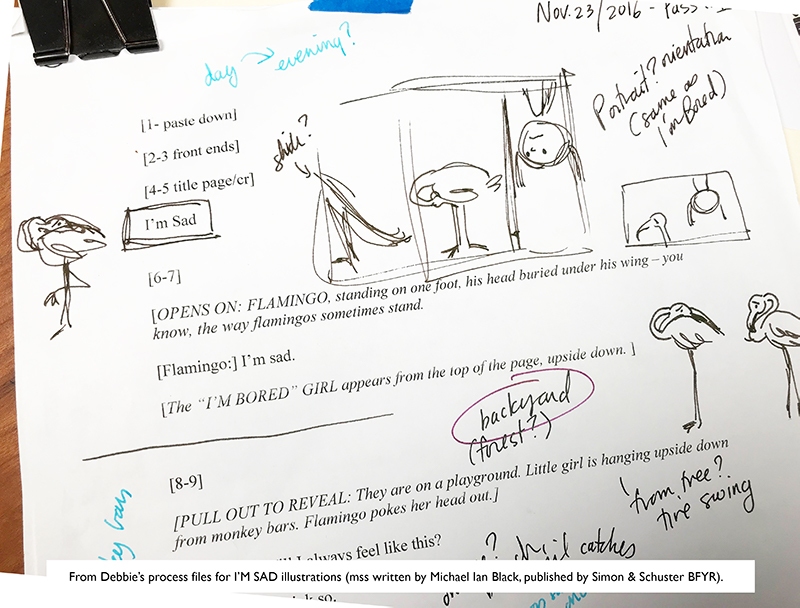 Nov. 23/2016 - Pass
day → evening?
[1- paste down]
[2-3 front ends]
[4-5 title page/cr]
I'm Sad
slide?
Portrait? orientation
(same as
I'm Bored)
[6-7]
[OPENS ON: FLAMINGO, standing on one foot, his head buried under his wing – you
know, the way flamingos sometimes stand.
[Flamingo:] I'm sad.
[The “I'M BORED” GIRL appears from the top of the page, upside down. ]
backyard
(forest?)
[8-9]
[PULL OUT TO REVEAL: They are on a playground. Little girl is hanging upside down
from monkey bars. Flamingo pokes her head out.]
from tree?
tire swing
bars
I always feel like this?
catches
so.
From Debbie's process files for I'M SAD illustrations (mss written by Michael Ian Black, published by Simon & Schuster BFYR).